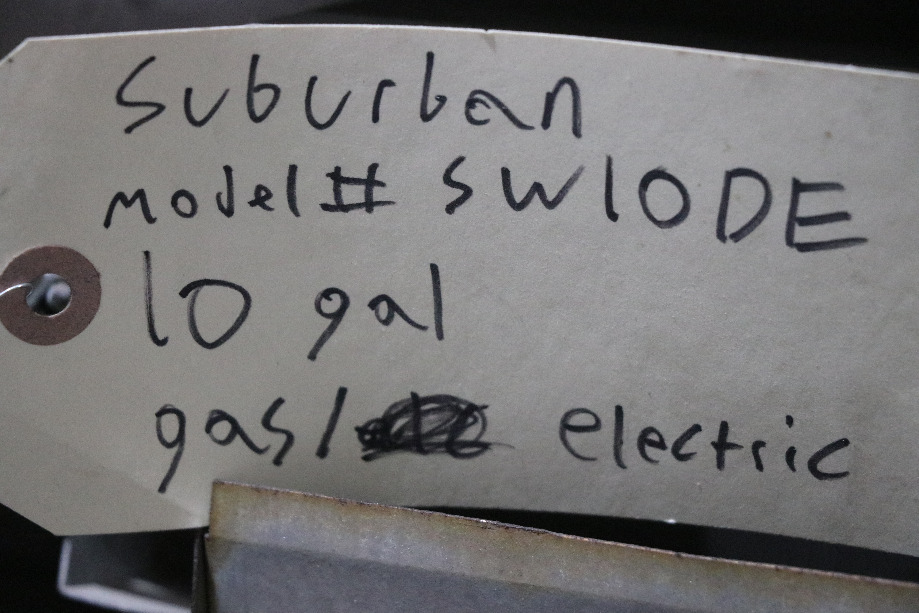 Suburban
model # SW10DE
10 gal
gas/ electric